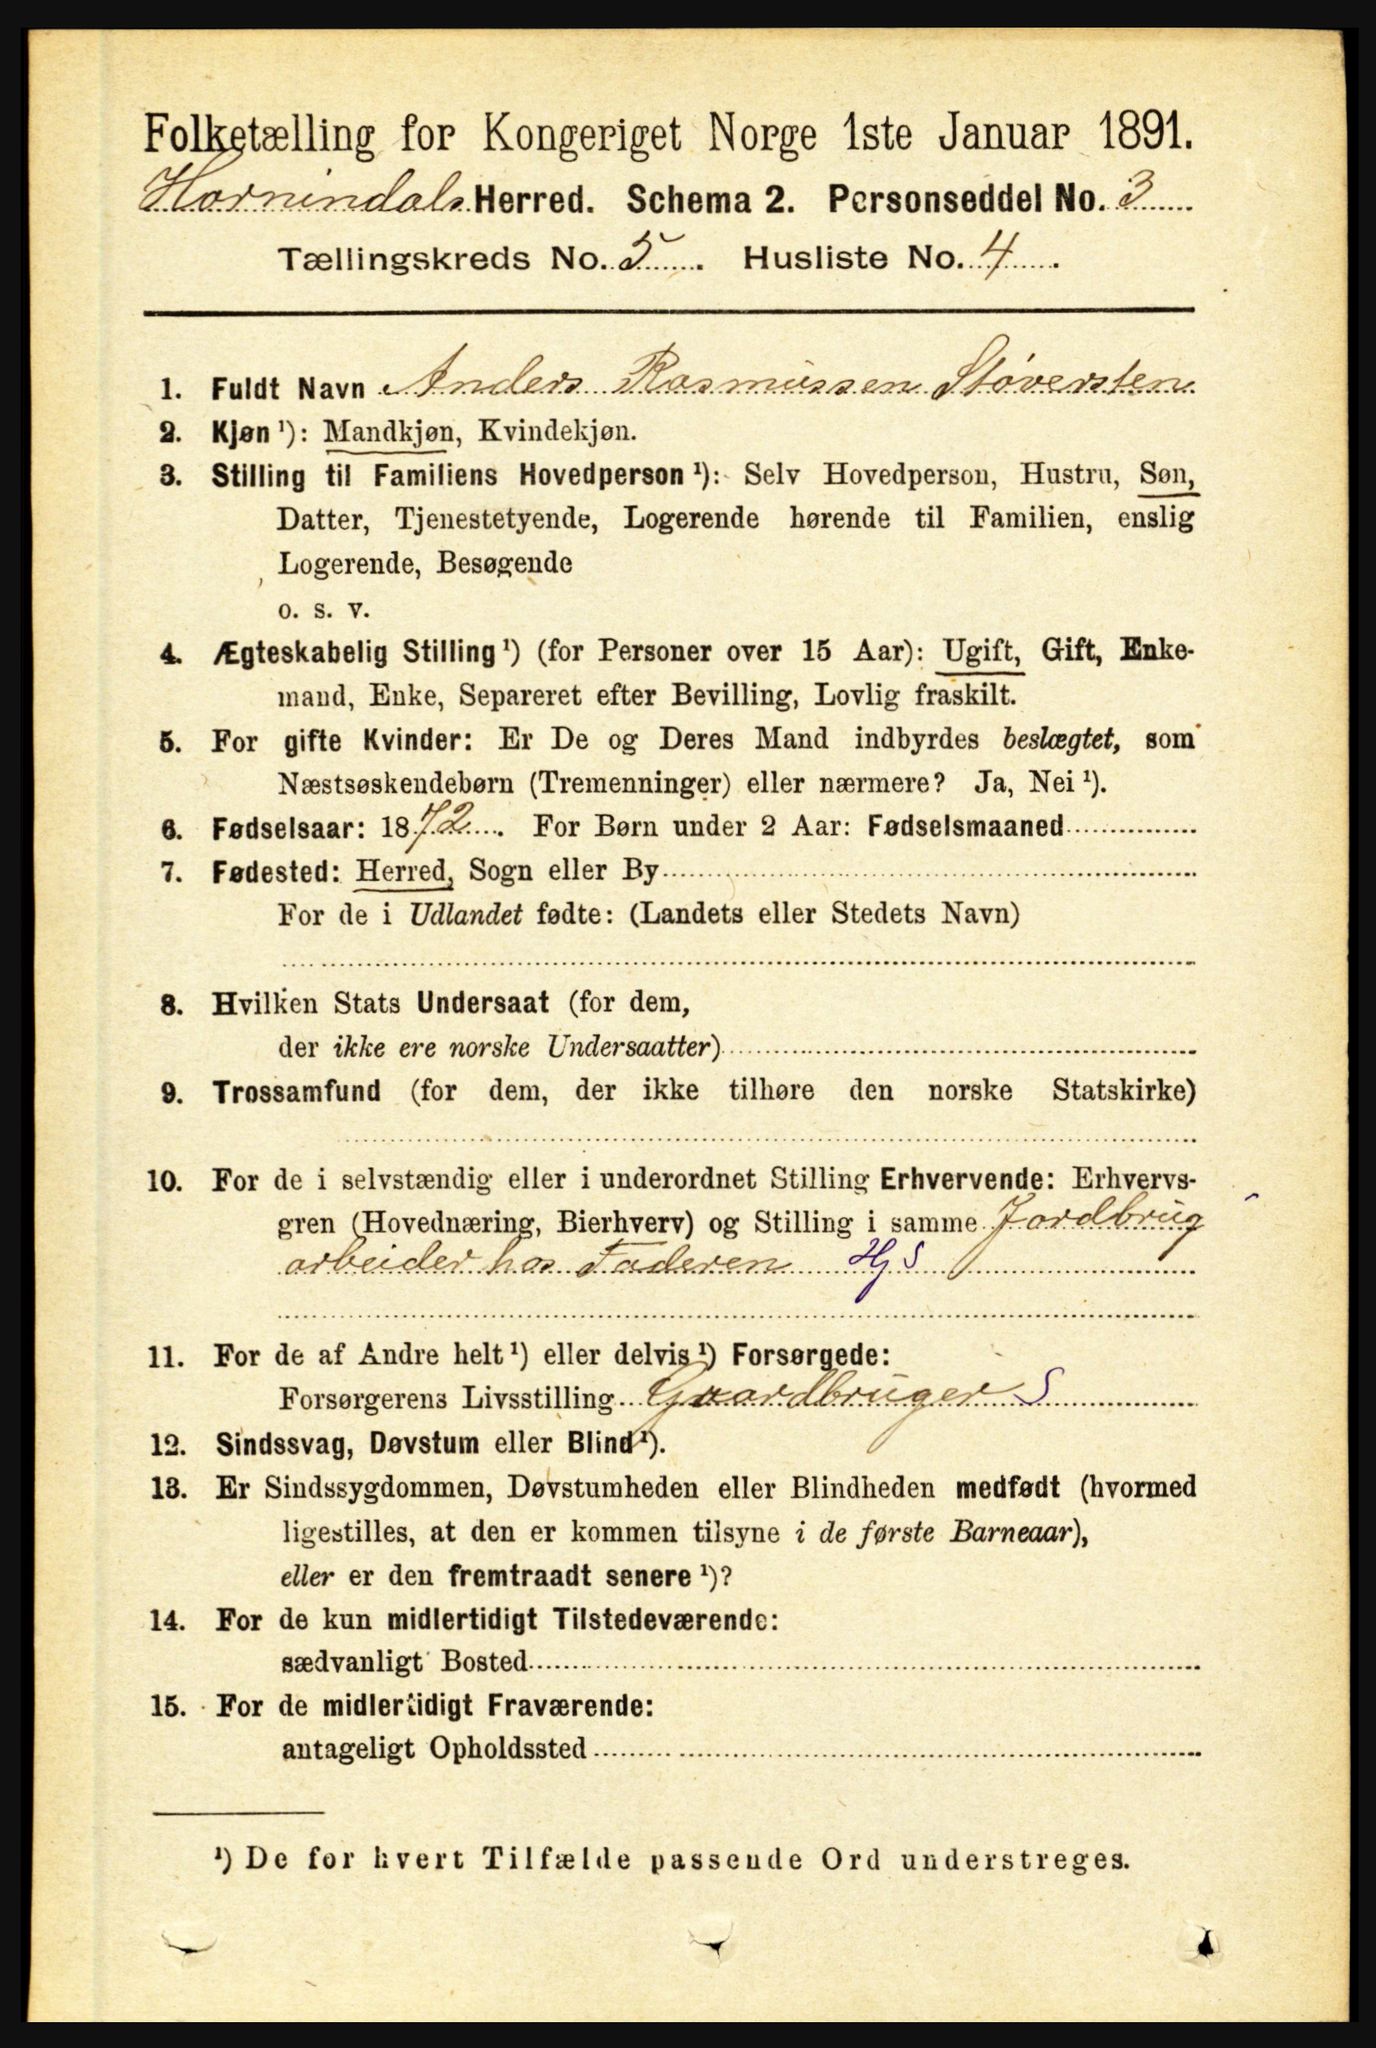 Folketælling for Kongeriget Norge 1ste Januar 1891.
Hornindals Herred. Schema 2. Personseddel No. 3
Tællingskreds No. 5. Husliste No. 4.
1. Fuldt Navn Anders Rasmussen Støversten
2. Kjøn ¹): Mandkjøn, Kvindekjøn.
3. Stilling til Familiens Hovedperson ¹): Selv Hovedperson, Hustru, Søn,
Datter, Tjenestetyende, Logerende hørende til Familien, enslig
Logerende, Besøgende
o. s. v.
4. Ægteskabelig Stilling ¹) (for Personer over 15 Aar): Ugift, Gift, Enke-
mand, Enke, Separeret efter Bevilling, Lovlig fraskilt.
5. For gifte Kvinder: Er De og Deres Mand indbyrdes beslægtet, som
Næstsøskendebørn (Tremenninger) eller nærmere? Ja, Nei ¹).
6. Fødselsaar: 1872. For Børn under 2 Aar: Fødselsmaaned
7. Fødested: Herred, Sogn eller By
For de i Udlandet fødte: (Landets eller Stedets Navn)
8. Hvilken Stats Undersaat (for dem,
der ikke ere norske Undersaatter)
9. Trossamfund (for dem, der ikke tilhøre den norske Statskirke)
10. For de i selvstændig eller i underordnet Stilling Erhvervende: Erhvervs-
gren (Hovednæring, Bierhverv) og Stilling i samme Jordbrug
arbeider hos Faderen Hj S
11. For de af Andre helt ¹) eller delvis ¹) Forsørgede:
Forsørgerens Livsstilling Gaardbruger S
12. Sindssvag, Døvstum eller Blind ¹).
13. Er Sindssygdommen, Døvstumheden eller Blindheden medfødt (hvormed
ligestilles, at den er kommen tilsyne i de første Barneaar),
eller er den fremtraadt senere ¹)?
14. For de kun midlertidigt Tilstedeværende:
sædvanligt Bosted
15. For de midlertidigt Fraværende:
antageligt Opholdssted
¹) De for hvert Tilfælde passende Ord understreges.